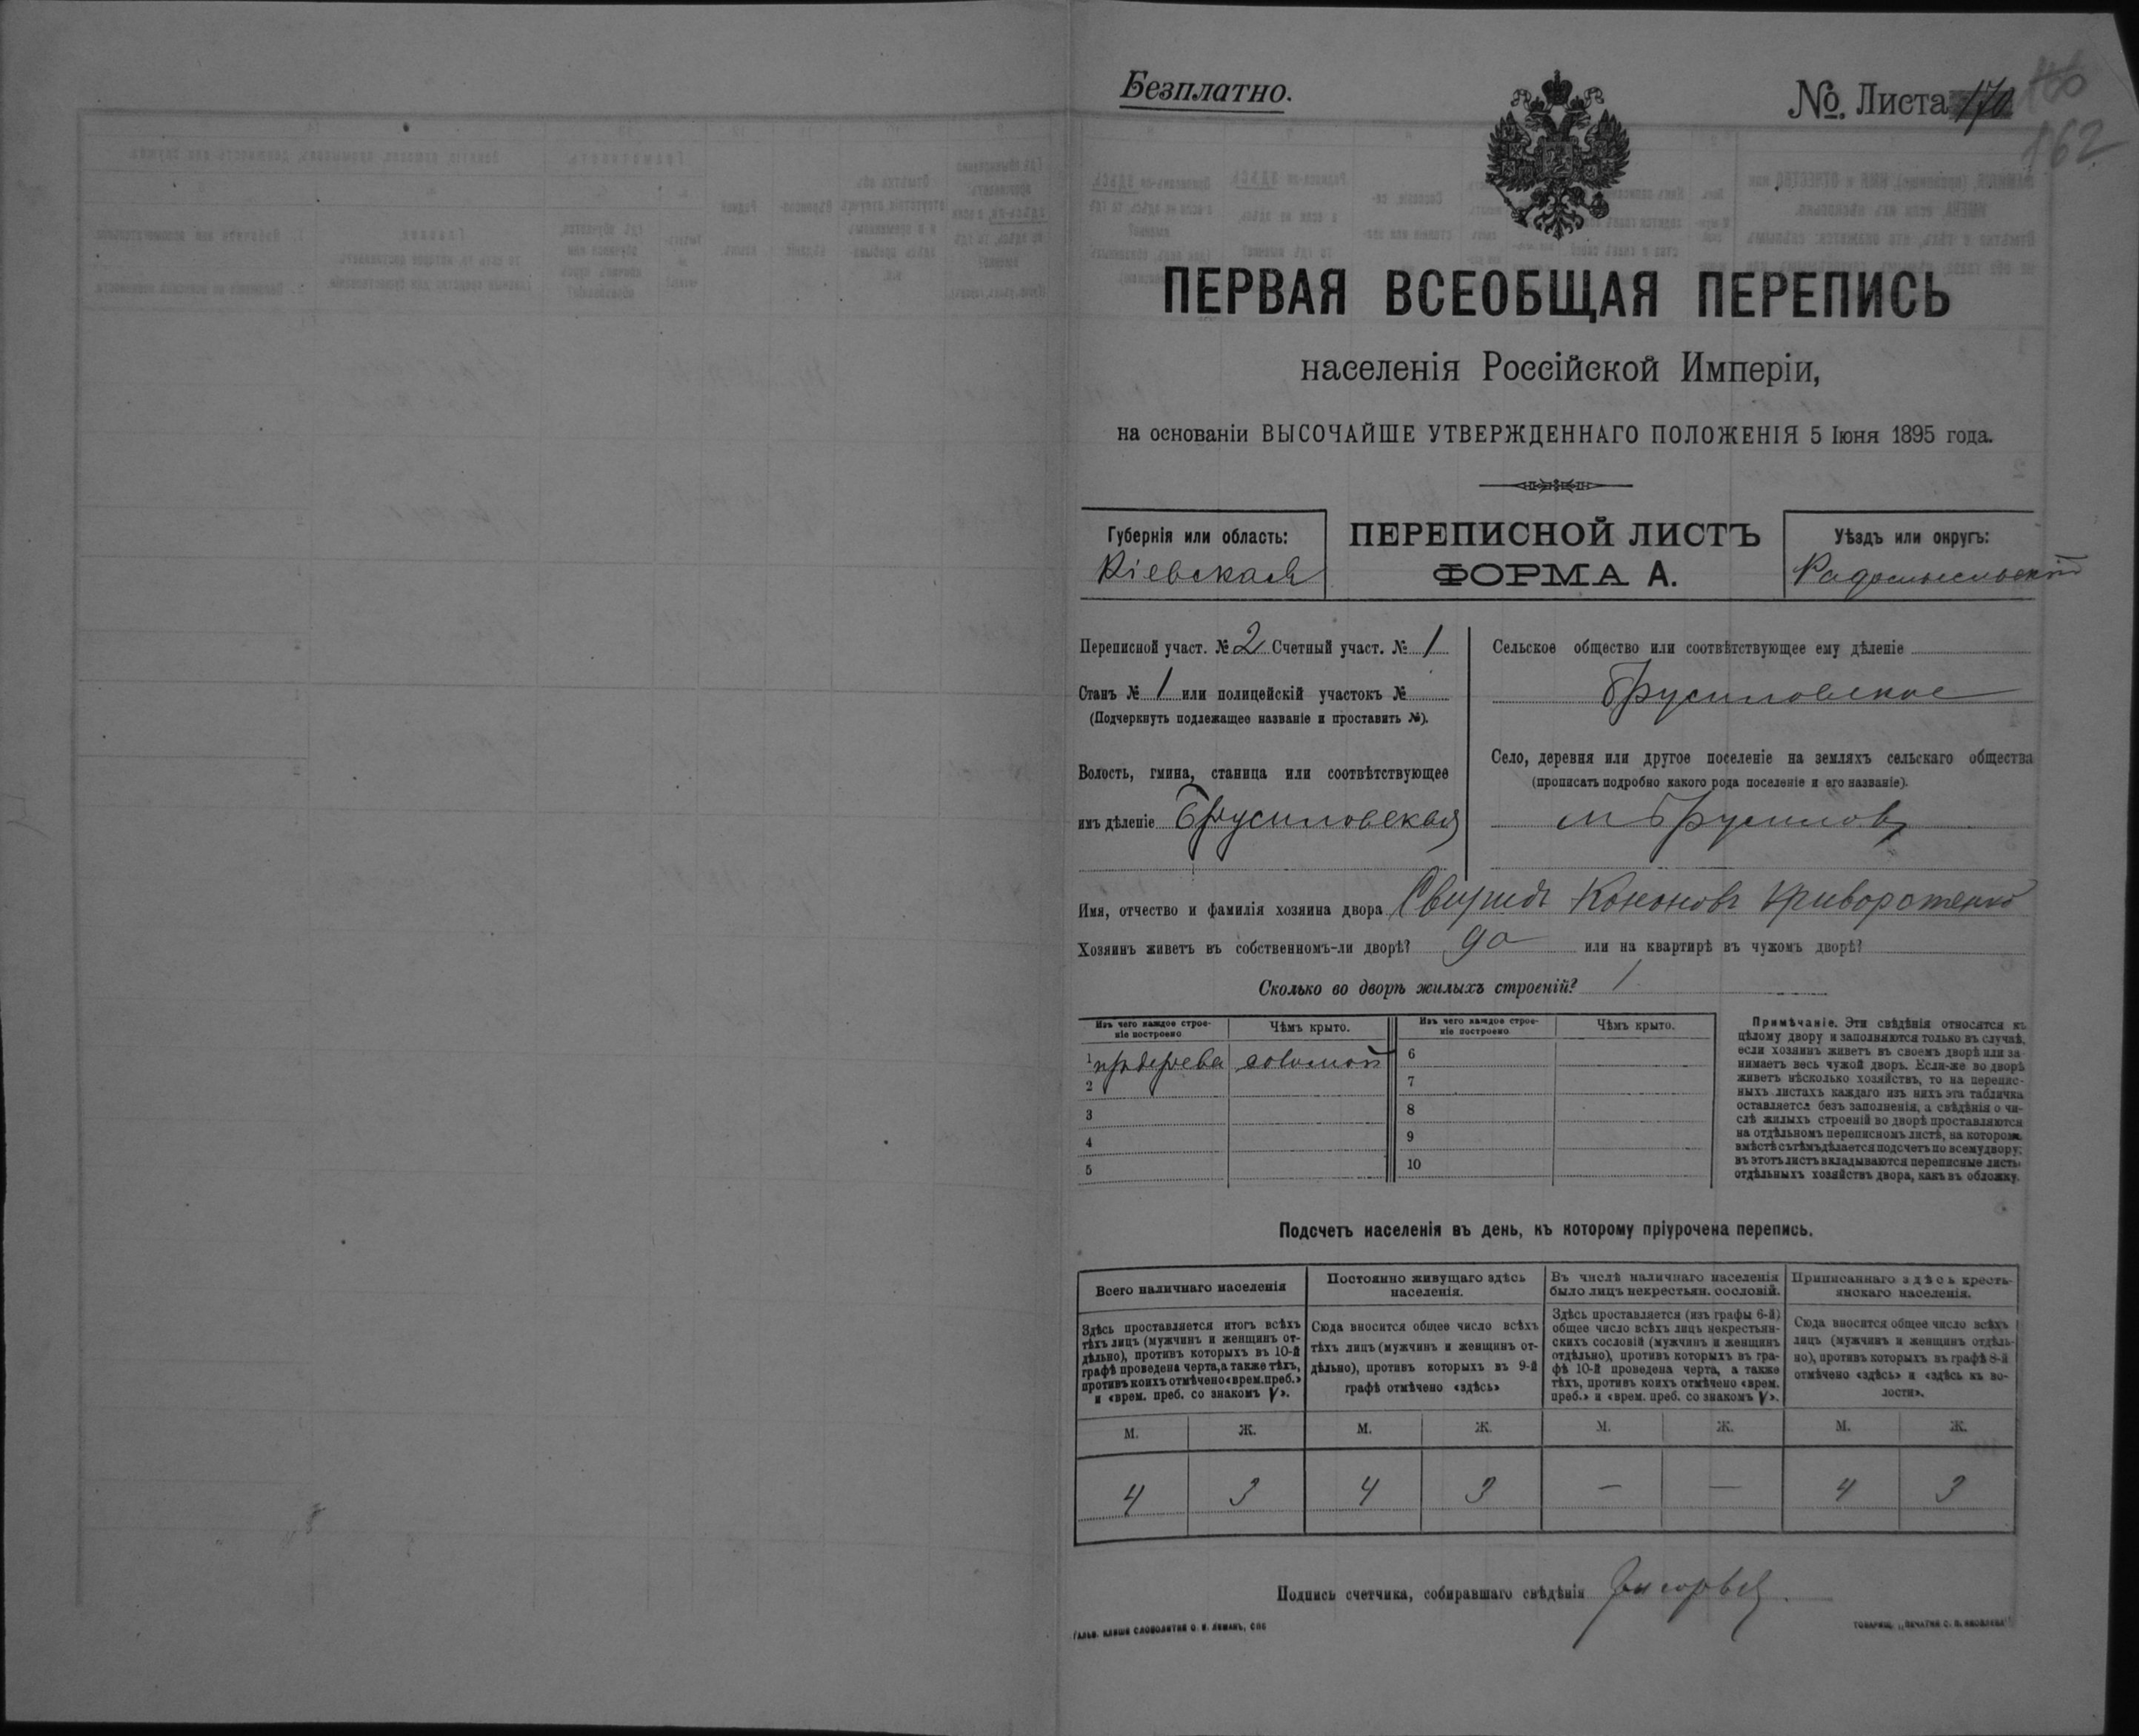 Безплатно.
№ Листа 170
162
ПЕРВАЯ ВСЕОБЩАЯ ПЕРЕПИСЬ
населенія Россійской Имперіи,
на основаніи ВЫСОЧАЙШЕ УТВЕРЖДЕННАГО ПОЛОЖЕНІЯ 5 Іюня 1895 года.
Губернія или область:
Кіевская
ПЕРЕПИСНОЙ ЛИСТЪ
ФОРМА А.
Уѣздъ или округъ:
Радомысльскій
Переписной участ. № 2 Счетный участ. № 1
Станъ № 1 или полицейскій участокъ №
(Подчеркнуть подлежащее названіе и проставить №).
Волость, гмина, станица или соотвѣтствующее
имъ дѣленіе Брусиловская
Сельское общество или соотвѣтствующее ему дѣленіе
Брусиловское
Село, деревня или другое поселеніе на земляхъ сельскаго общества
(прописать подробно какого рода поселеніе и его названіе).
м Брусиловъ
Имя, отчество и фамилія хозяина двора Свиридъ Кононовъ Криворотенко
Хозяинъ живетъ въ собственномъ-ли дворѣ? да или на квартирѣ въ чужомъ дворѣ?
Сколько во дворѣ жилыхъ строеній? 1
Изъ чего каждое строе-
ніе построено
Чѣмъ крыто.
Изъ чего каждое строе-
ніе построено
Чѣмъ крыто.
1 дерева соломой 6
2 7
3 8
4 9
5 10
Примѣчаніе. Эти свѣдѣнія относятся къ
цѣлому двору и заполняются только въ случаѣ,
если хозяинъ живетъ въ своемъ дворѣ или за-
нимаетъ весь чужой дворъ. Если-же во дворѣ
живетъ нѣсколько хозяйствъ, то на перепис-
ныхъ листахъ каждаго изъ нихъ эта табличка
оставляется безъ заполненія, а свѣдѣнія о чи-
слѣ жилыхъ строеній во дворѣ проставляются
на отдѣльномъ переписномъ листѣ, на которомъ
вмѣстѣ съ тѣмъ дѣлается подсчетъ по всему двору;
въ этотъ листъ вкладываются переписные листы
отдѣльныхъ хозяйствъ двора, какъ въ обложку.
Подсчетъ населенія въ день, къ которому пріурочена перепись.
Всего наличнаго населенія
Здѣсь проставляется итогъ всѣхъ
тѣхъ лицъ (мужчинъ и женщинъ от-
дѣльно), противъ которыхъ въ 10-й
графѣ проведена черта, а также тѣхъ,
противъ коихъ отмѣчено «врем. преб.»
и «врем. преб. со знакомъ V».
Постоянно живущаго здѣсь
населенія.
Сюда вносится общее число всѣхъ
тѣхъ лицъ (мужчинъ и женщинъ от-
дѣльно), противъ которыхъ въ 9-й
графѣ отмѣчено «здѣсь»
Въ числѣ наличнаго населенія
было лицъ некрестьян. сословій.
Здѣсь проставляется (изъ графы 6-й)
общее число всѣхъ лицъ некрестьян-
скихъ сословій (мужчинъ и женщинъ
отдѣльно), противъ которыхъ въ гра-
фѣ 10-й проведена черта, а также
тѣхъ, противъ коихъ отмѣчено «врем.
преб.» и «врем. преб. со знакомъ V».
Приписаннаго здѣсь кресть-
янскаго населенія.
Сюда вносится общее число всѣхъ
лицъ (мужчинъ и женщинъ отдѣль-
но), противъ которыхъ въ графѣ 8-й
отмѣчено «здѣсь» и «здѣсь въ во-
лости».
М. Ж. М. Ж. М. Ж. М. Ж.
4 3 4 3 — — 4 3
Подпись счетчика, собиравшаго свѣдѣнія
ГАЛЬВ. КЛИШЕ СЛОВОЛИТНИ О. И. ЛЕМАНЪ, СПБ
ТОВАРИЩ. „ПЕЧАТНЯ С. П. ЯКОВЛЕВА"